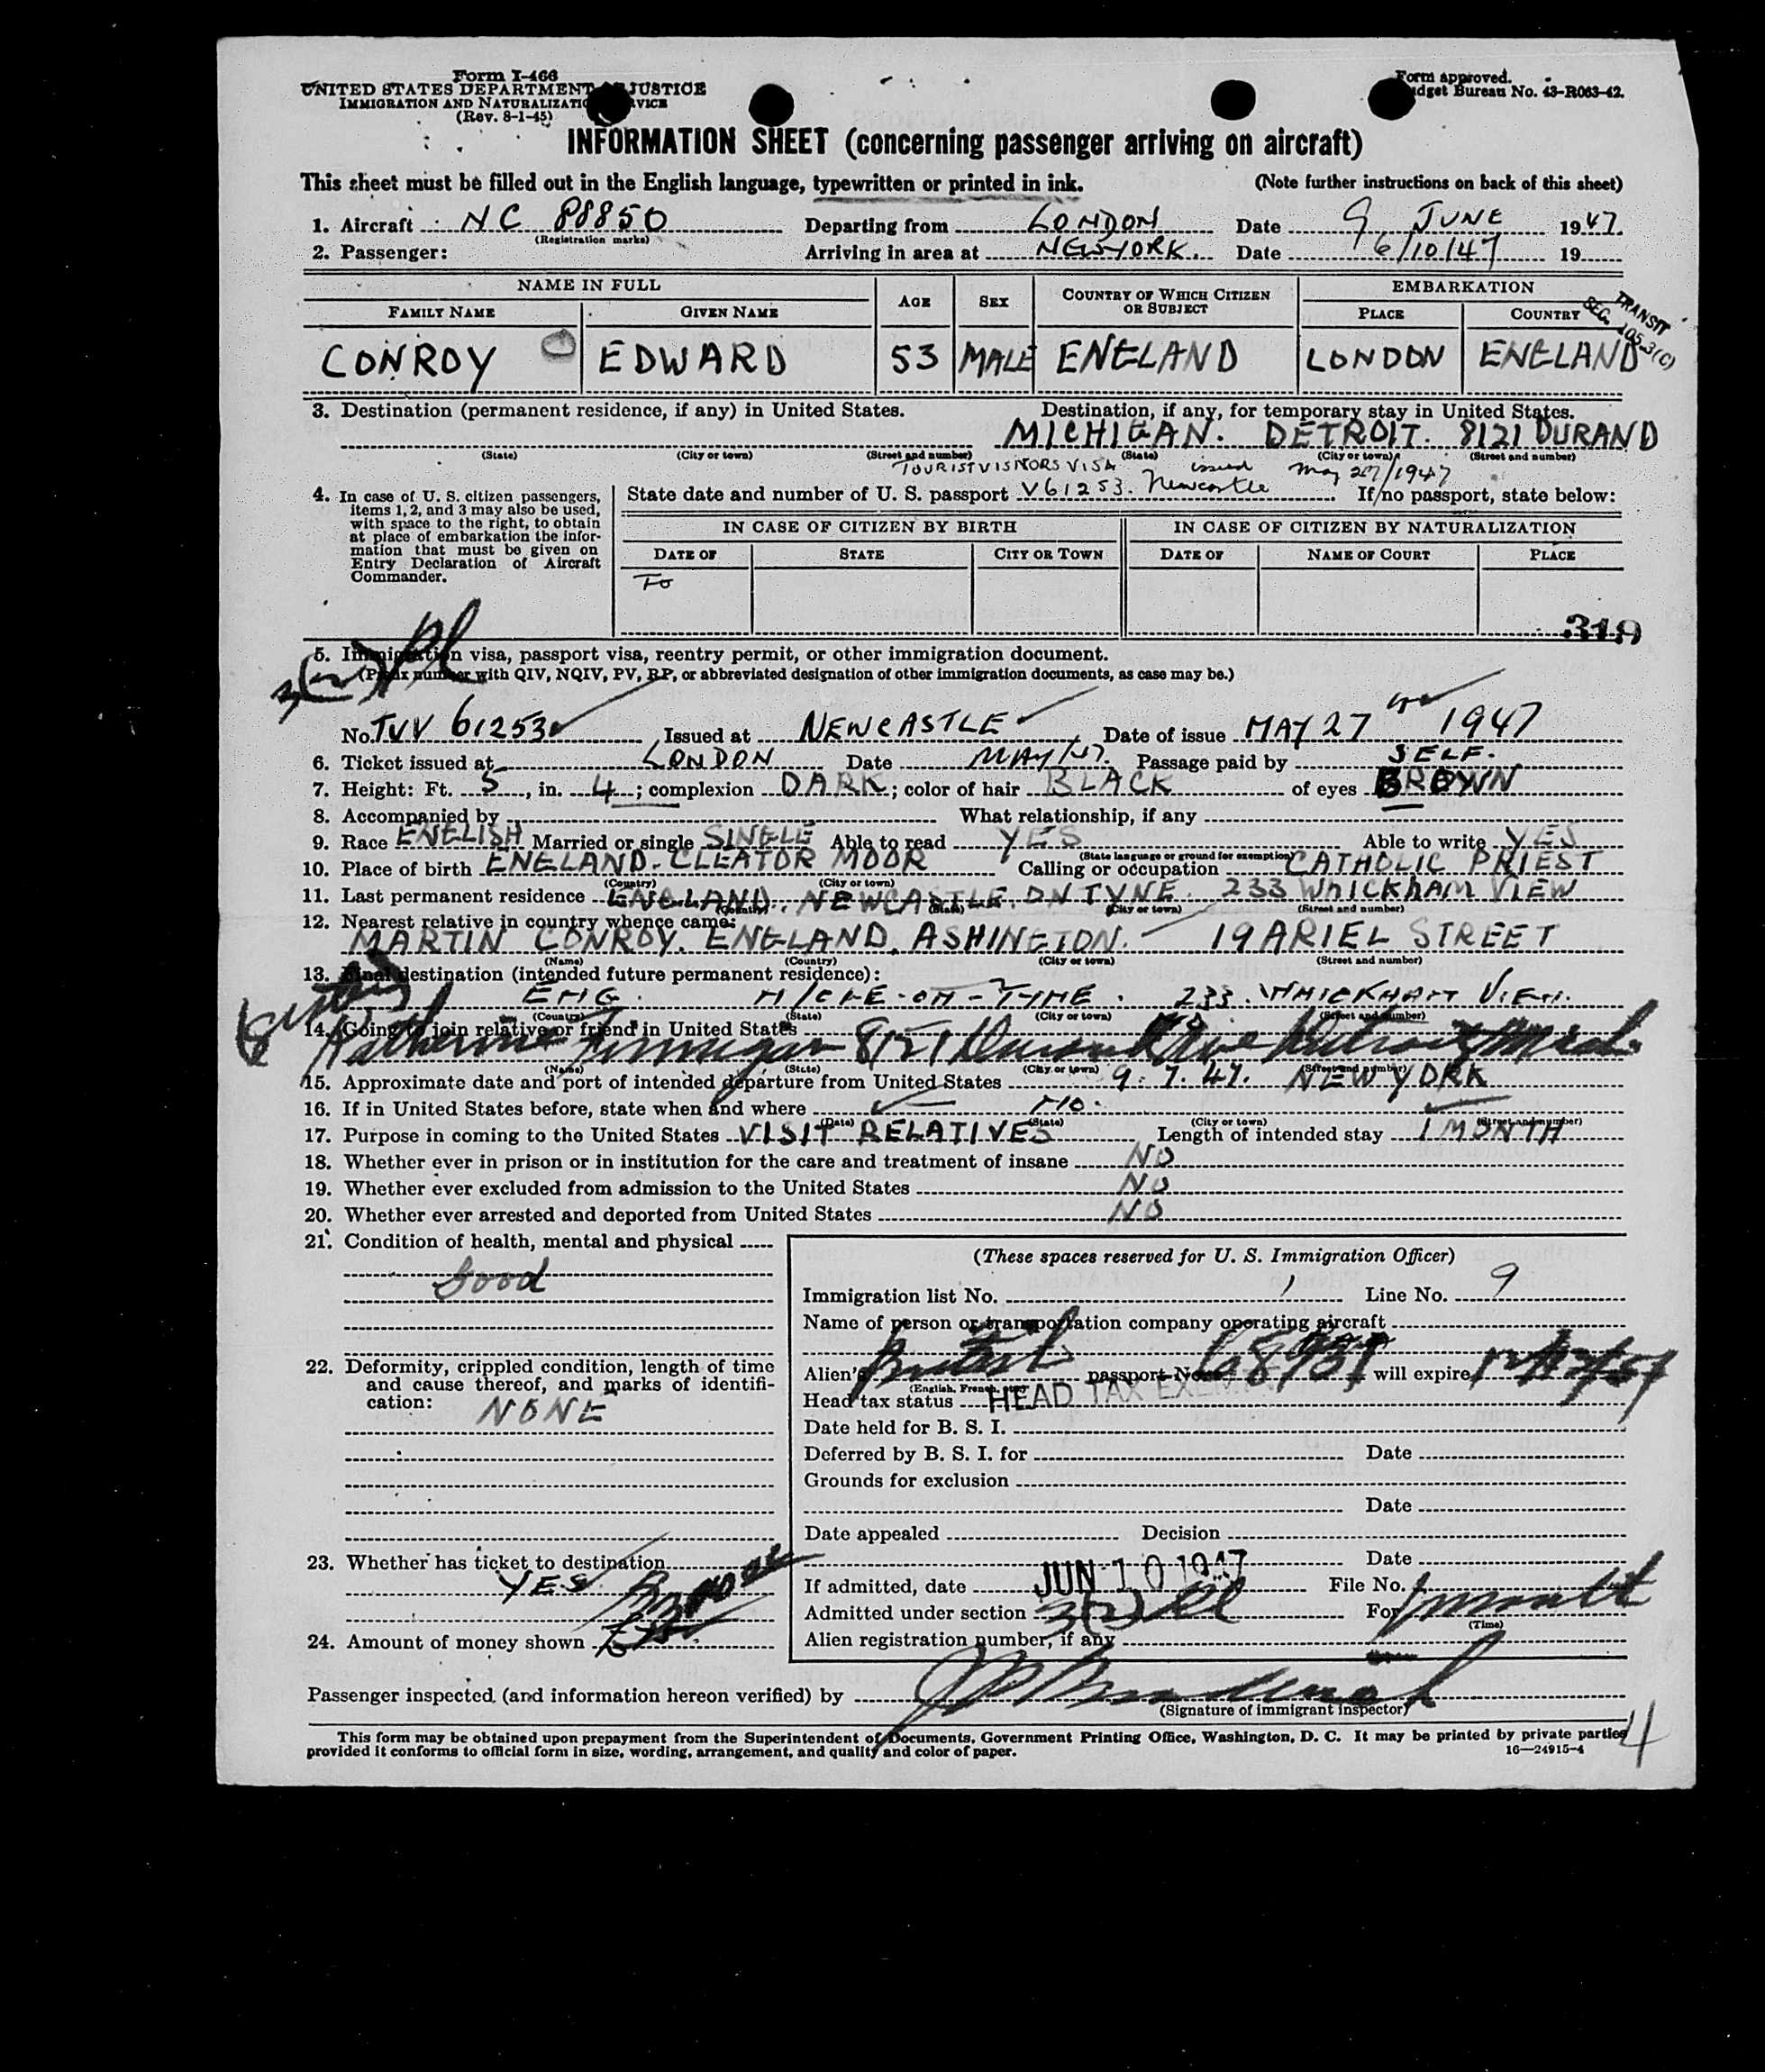 Form I-466
UNITED STATES DEPARTMENT JUSTICE
IMMIGRATION AND NATURALIZATION SERVICE
(Rev. 8-1-45)
Form approved.
Budget Bureau No. 43-R063-42.
INFORMATION SHEET (concerning passenger arriving on aircraft)
This sheet must be filled out in the English language, typewritten or printed in ink. (Note further instructions on back of this sheet)
1. Aircraft NC 88850 Departing from LONDON Date 9 JUNE 1947.
(Registration marks)
2. Passenger: Arriving in area at NEW YORK. Date 6/10/47 19
NAME IN FULL AGE SEX COUNTRY OF WHICH CITIZEN OR SUBJECT EMBARKATION
FAMILY NAME GIVEN NAME PLACE COUNTRY
TRANSIT
SEC. 105.3(c)
CONROY EDWARD 53 MALE ENGLAND LONDON ENGLAND
3. Destination (permanent residence, if any) in United States. Destination, if any, for temporary stay in United States.
MICHIGAN. DETROIT. 8121 DURAND
(State) (City or town) (Street and number) (State) (City or town) (Street and number)
TOURIST VISITORS VISA issued May 27/1947
4. In case of U. S. citizen passengers, items 1, 2, and 3 may also be used, with space to the right, to obtain at place of embarkation the information that must be given on Entry Declaration of Aircraft Commander.
State date and number of U. S. passport V61253. Newcastle If no passport, state below:
IN CASE OF CITIZEN BY BIRTH IN CASE OF CITIZEN BY NATURALIZATION
DATE OF STATE CITY OR TOWN DATE OF NAME OF COURT PLACE
To
319
5. Immigration visa, passport visa, reentry permit, or other immigration document.
(Prefix number with QIV, NQIV, PV, RP, or abbreviated designation of other immigration documents, as case may be.)
No. TVV 61253 Issued at NEWCASTLE Date of issue MAY 27 1947
6. Ticket issued at LONDON Date MAY/47 Passage paid by SELF.
7. Height: Ft. 5, in. 4; complexion DARK; color of hair BLACK of eyes BROWN
8. Accompanied by What relationship, if any
9. Race ENGLISH Married or single SINGLE Able to read YES Able to write YES
(State language or ground for exemption)
10. Place of birth ENGLAND. CLEATOR MOOR Calling or occupation CATHOLIC PRIEST
(Country) (City or town)
11. Last permanent residence ENGLAND. NEWCASTLE. ON TYNE. 233 WHICKHAM VIEW
(Country) (State) (City or town) (Street and number)
12. Nearest relative in country whence came:
MARTIN CONROY. ENGLAND. ASHINGTON. 19 ARIEL STREET
(Name) (Country) (City or town) (Street and number)
13. Final destination (intended future permanent residence):
ENG. N/CLE-ON-TYNE. 233. WHICKHAM VIEW.
(Country) (State) (City or town) (Street and number)
14. Going to join relative or friend in United States
Katherine Finnigan 8121 Durand Ave Detroit Mich
(Name) (State) (City or town) (Street and number)
15. Approximate date and port of intended departure from United States 9. 7. 47. NEW YORK
16. If in United States before, state when and where NO.
(Date) (State) (City or town) (Street and number)
17. Purpose in coming to the United States VISIT RELATIVES Length of intended stay 1 MONTH
18. Whether ever in prison or in institution for the care and treatment of insane NO
19. Whether ever excluded from admission to the United States NO
20. Whether ever arrested and deported from United States NO
21. Condition of health, mental and physical
Good
22. Deformity, crippled condition, length of time and cause thereof, and marks of identification:
NONE
23. Whether has ticket to destination
YES
24. Amount of money shown
(These spaces reserved for U. S. Immigration Officer)
Immigration list No. 1 Line No. 9
Name of person or transportation company operating aircraft
Alien's British passport No. will expire
(English, French, etc.)
Head tax status HEAD TAX EXEMPT
Date held for B. S. I.
Deferred by B. S. I. for Date
Grounds for exclusion
Date
Date appealed Decision
Date
If admitted, date JUN 10 1947 File No.
Admitted under section 3(2) For 1 month
(Time)
Alien registration number, if any
Passenger inspected (and information hereon verified) by
(Signature of immigrant inspector)
This form may be obtained upon prepayment from the Superintendent of Documents, Government Printing Office, Washington, D. C. It may be printed by private parties
provided it conforms to official form in size, wording, arrangement, and quality and color of paper. 16—24915-4
4